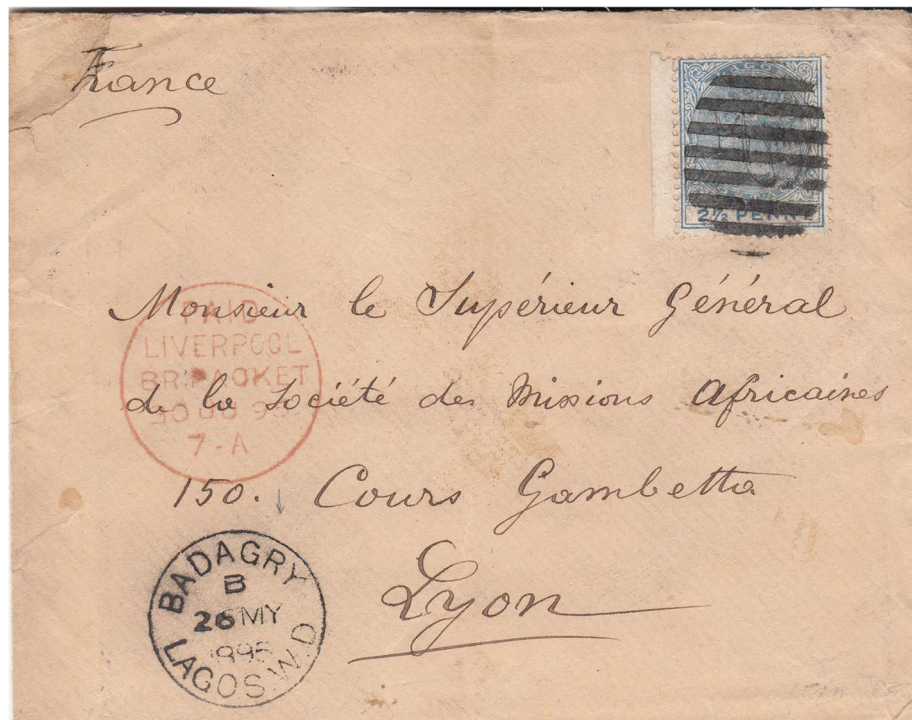 France
LAGOS
2½ PENNY
Monsieur le Supérieur Général
de la Société des Missions Africaines
150. Cours Gambetta
Lyon
PAID
LIVERPOOL
BR. PACKET
7-A
BADAGRY
B
26 MY
LAGOS.W.D